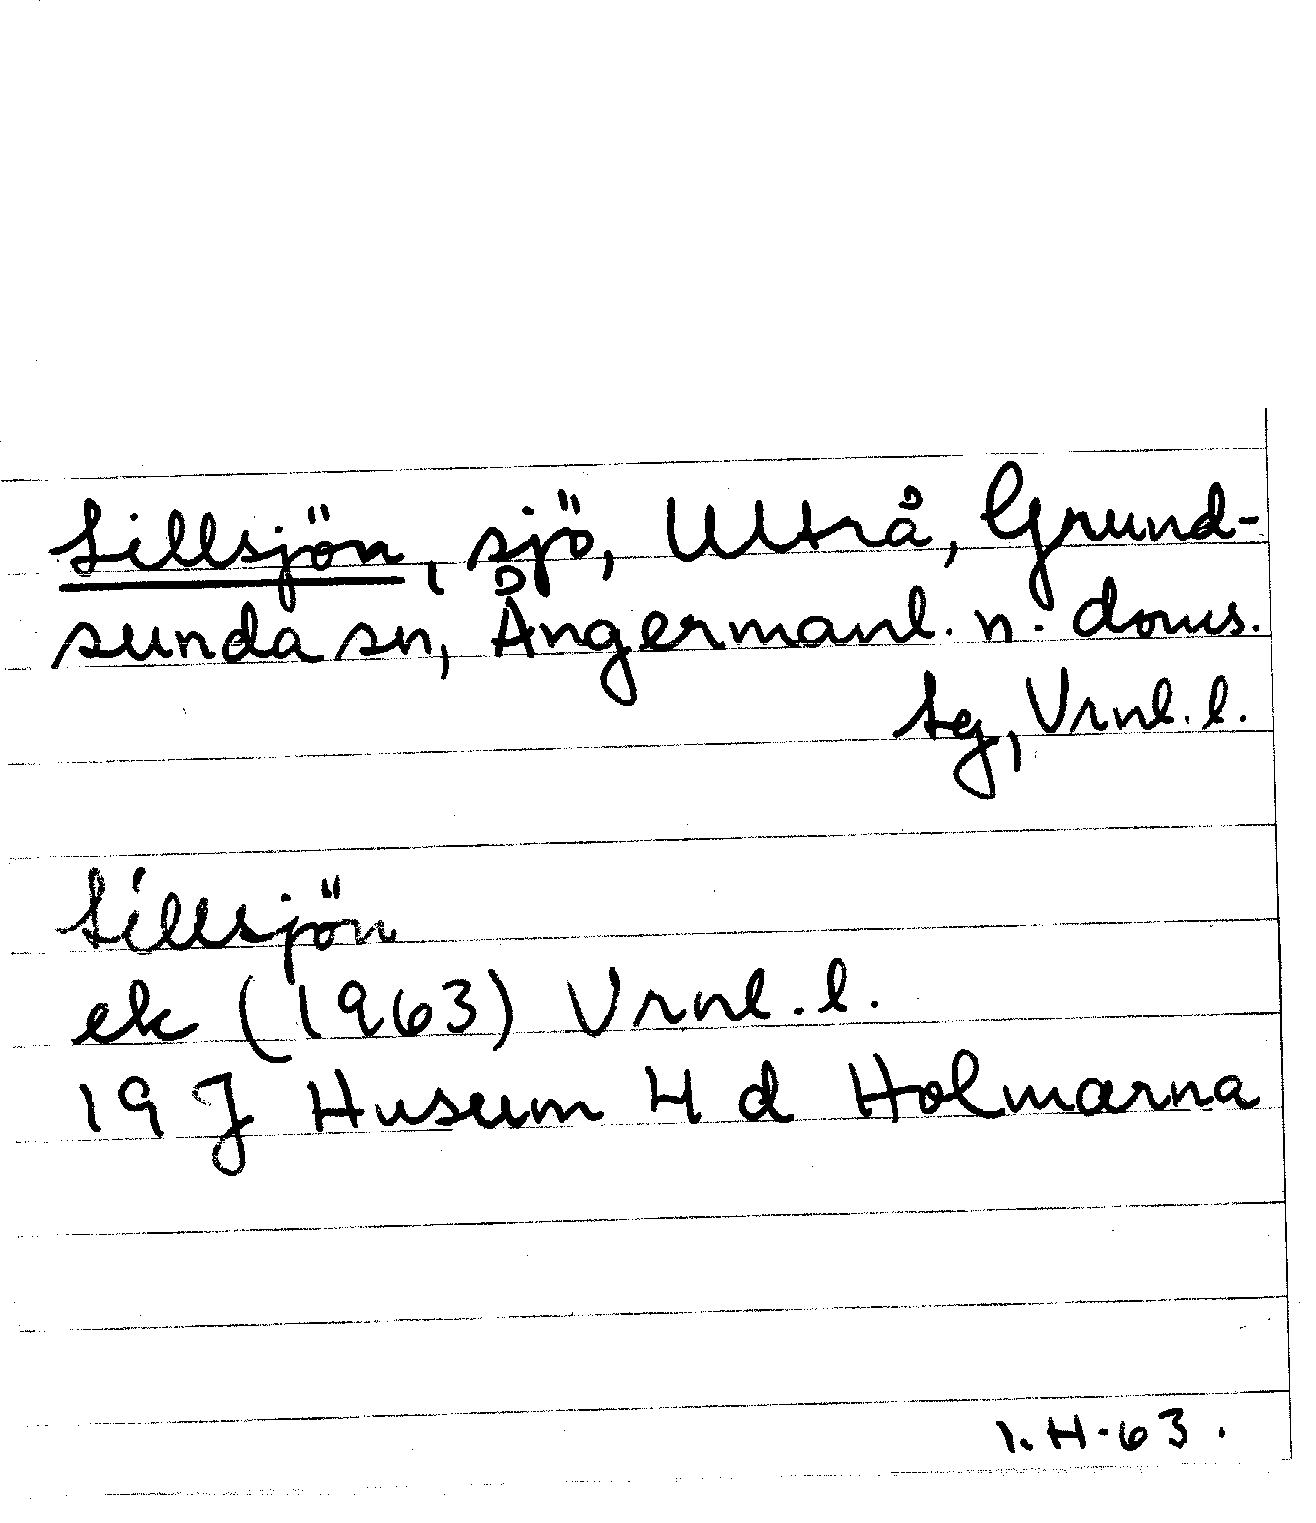 Lillsjön, sjö, Ultrå, Grund-
sunda sn, Ångermanl. n. doms.
tg, Vrnl. l.
Lillsjön
ek (1963) Vrnl. l.
19 J Husum 4 d Holmarna
I.H-63.